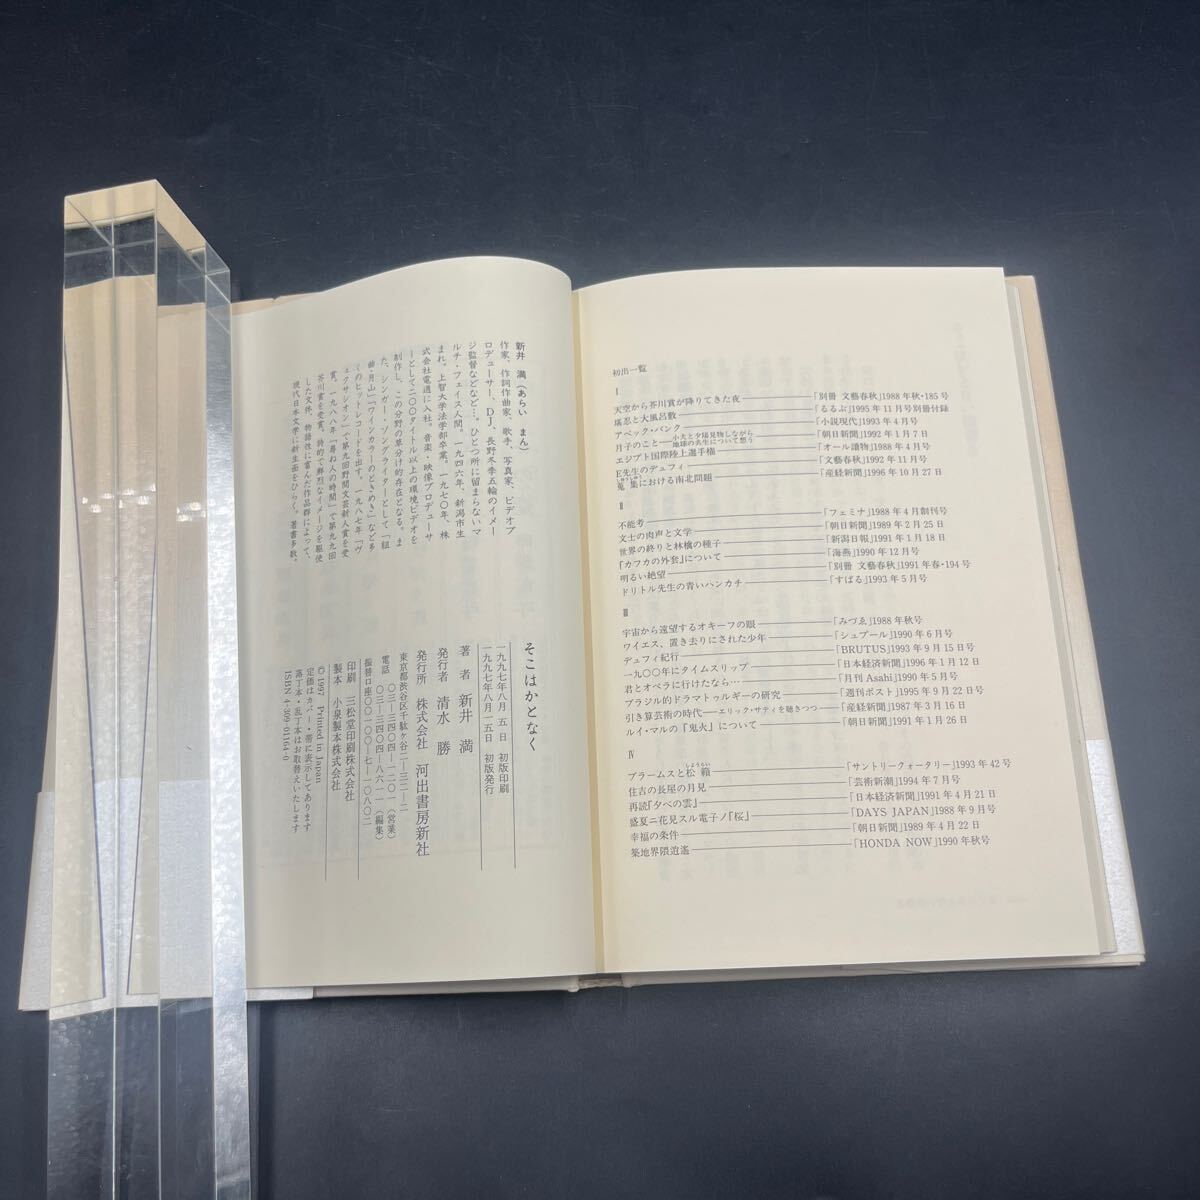 初出一覧
Ⅰ
天空から芥川賞が降りてきた夜――「別冊 文藝春秋」1988年秋・185号
堪忍と大風呂敷――「るるぶ」1995年11月号別冊付録
アベック・バンク――「小説現代」1993年4月号
月子のこと―小犬と夕陽見物しながら地球の共生について想う――「朝日新聞」1992年1月7日
エジプト国際陸上選手権――「オール讀物」1988年4月号
E先生のデュフィ――「文藝春秋」1992年11月号
蒐集における南北問題――「産経新聞」1996年10月27日
Ⅱ
不能考――「フェミナ」1988年4月創刊号
文士の肉声と文学――「朝日新聞」1989年2月25日
世界の終りと林檎の種子――「新潟日報」1991年1月18日
『カフカの外套』について――「海燕」1990年12月号
明るい絶望――「別冊 文藝春秋」1991年春・194号
ドリトル先生の青いハンカチ――「すばる」1993年5月号
Ⅲ
宇宙から遠望するオキーフの眼――「みづゑ」1988年秋号
ワイエス、置き去りにされた少年――「シュプール」1990年6月号
デュフィ紀行――「BRUTUS」1993年9月15日号
一九〇〇年にタイムスリップ――「日本経済新聞」1996年1月12日
君とオペラに行けたなら…――「月刊Asahi」1990年5月号
ブラジル的ドラマトゥルギーの研究――「週刊ポスト」1995年9月22日号
引き算芸術の時代―エリック・サティを聴きつつ――「産経新聞」1987年3月16日
ルイ・マルの『鬼火』について――「朝日新聞」1991年1月26日
Ⅳ
ブラームスと松籟――「サントリークォータリー」1993年42号
住吉の長屋の月見――「芸術新潮」1994年7月号
再読『夕べの雲』――「日本経済新聞」1991年4月21日
盛夏ニ花見スル電子ノ『桜』――「DAYS JAPAN」1988年9月号
幸福の条件――「朝日新聞」1989年4月22日
築地界隈逍遙――「HONDA NOW」1990年秋号
新井 満(あらい まん)
作家、作詞作曲家、歌手、写真家、ビデオプ
ロデューサー、DJ、長野冬季五輪のイメー
ジ監督などなど…。ひとつ所に留まらないマ
ルチ・フェイス人間。一九四六年、新潟市生
まれ。上智大学法学部卒業。一九七〇年、株
式会社電通に入社。音楽・映像プロデューサ
ーとして二〇〇タイトル以上の環境ビデオを
制作し、この分野の草分け的存在となる。ま
た、シンガー・ソングライターとして「組
曲・月山」「ワインカラーのときめき」など多
くのヒットレコードを出す。一九八七年「ヴ
ェクサシオン」で第九回野間文芸新人賞を受
賞。一九八八年「尋ね人の時間」で第九九回
芥川賞を受賞。詩的で鮮烈なイメージを駆使
した文体、物語性に富んだ作品群によって、
現代日本文学に新生面をひらく。著書多数。
そこはかとなく
一九九七年八月 五日 初版印刷
一九九七年八月一五日 初版発行
著 者 新井 満
発行者 清水 勝
発行所 株式会社 河出書房新社
東京都渋谷区千駄ヶ谷二―三二―二
電話 〇三―三四〇四―一二〇一(営業)
〇三―三四〇四―八六一一(編集)
振替口座〇〇一〇〇―七―一〇八〇二
印刷 三松堂印刷株式会社
製本 小泉製本株式会社
© 1997 Printed in Japan
定価はカバー・帯に表示してあります
落丁本・乱丁本はお取替えいたします
ISBN 4-309-01164-0